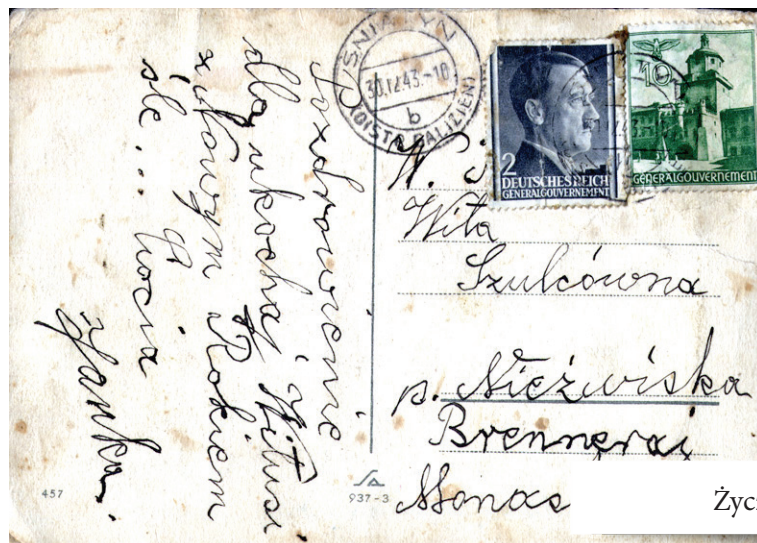 Pozdrowienie
dla ukochaj Witusi
z Nowym Rokiem
śle...
Janka.
ŚNIATYN
30.12.43.-18
b
(DISTR. GALIZIEN)
2
DEUTSCHES REICH
GENERALGOUVERNEMENT
10
GENERALGOUVERNEMENT
W.
Wita
Szulcówna
p. Nieźwiska
Brennerai
Monas
457
937-3
Życz